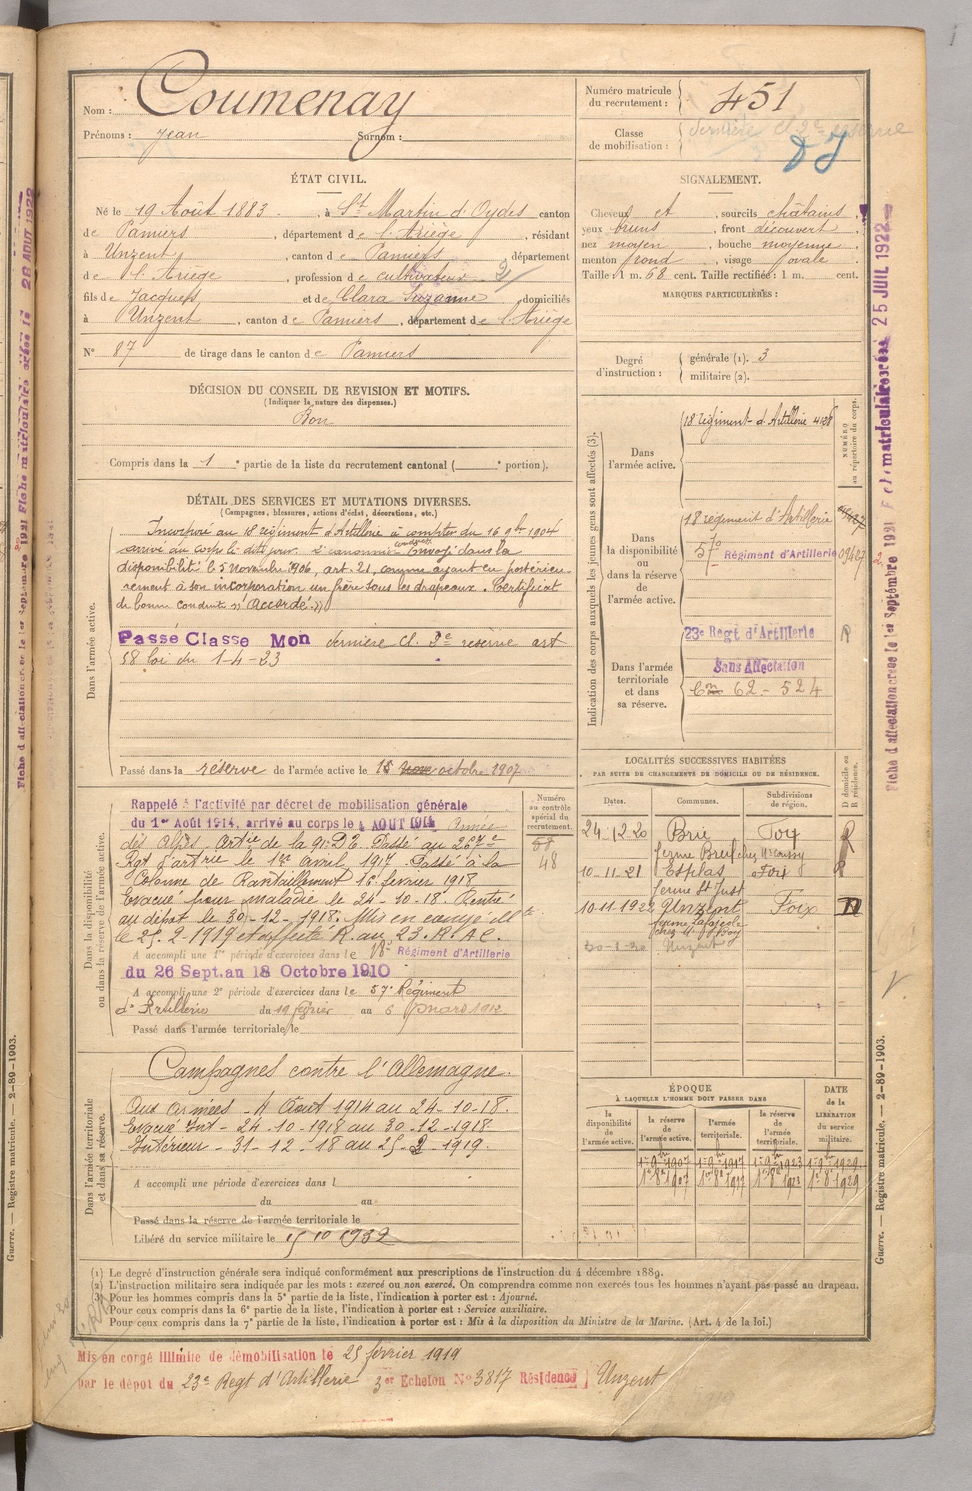 Nom : Coumenay
Prénoms : Jean Surnom :
Numéro matricule du recrutement : 451
Classe de mobilisation : dernière cl 2e réserve
DJ
ÉTAT CIVIL.
Né le 19 Août 1883 , à St Martin d'Oydes canton
de Pamiers , département de l'Ariège , résidant
à Unzent , canton de Pamiers département
de l'Ariège , profession de cultivateur
fils de Jacques et de Clara Suzanne domiciliés
à Unzent , canton de Pamiers , département de l'Ariège
N° 87 de tirage dans le canton de Pamiers
SIGNALEMENT.
Cheveux et , sourcils châtains ,
yeux bruns , front découvert ,
nez moyen , bouche moyenne ,
menton rond , visage ovale
Taille : 1 m. 68 cent. Taille rectifiée : 1 m. cent.
MARQUES PARTICULIÈRES :
Degré d'instruction :
générale (1). 3
militaire (2).
DÉCISION DU CONSEIL DE REVISION ET MOTIFS.
(Indiquer la nature des dispenses.)
Bon
Compris dans la 1 e partie de la liste du recrutement cantonal ( e portion).
DÉTAIL DES SERVICES ET MUTATIONS DIVERSES.
(Campagnes, blessures, actions d'éclat, décorations, etc.)
Dans l'armée active.
Incorporé au 18 régiment d'Artillerie à compter du 16 9bre 1904
arrivé au corps le dit jour 2e canonnier conduct. Envoyé dans la
disponibilité le 5 Novembre 1906, art. 21, comme ayant eu postérieu-
rement à son incorporation un frère sous les drapeaux. Certificat
de bonne conduite "Accordé".
Passé Classe Mon dernière cl. 2e réserve art
58 loi du 1-4-23
Passé dans la réserve de l'armée active le 1er octobre 1907
Indication des corps auxquels les jeunes gens sont affectés (3).
NUMÉRO au répertoire du corps.
Dans l'armée active.
18 régiment d'Artillerie
Dans la disponibilité ou dans la réserve de l'armée active.
18 régiment d'Artillerie
57e Régiment d'Artillerie
Dans l'armée territoriale et dans sa réserve.
23e Regt d'Artillerie R
Sans Affectation
62-524
LOCALITÉS SUCCESSIVES HABITÉES
PAR SUITE DE CHANGEMENTS DE DOMICILE OU DE RÉSIDENCE.
Dates. Communes. Subdivisions de région. D domicile ou R résidence.
24-12-20 Brie Foix R
10-11-21 Esplas Foix R
ferme St Just
10-11-1922 Unzent Foix D
Unzent
Dans la disponibilité ou dans la réserve de l'armée active.
Numéro au contrôle spécial du recrutement.
48
Rappelé à l'activité par décret de mobilisation générale
du 1er Août 1914, arrivé au corps le 4 AOUT 1914 Armée
des Alpes. Artie de la 91e DT. Passé au 267e
Rgt d'artrie le 1er avril 1917. Passé à la
Colonne de Ravitaillement 1er février 1918
Evacué pour maladie le 24-10-18. Rentré
au dépôt le 30-12-1918. Mis en congé ill
le 25-2-1919 et affecté R. au 23. R. A C.
A accompli une 1re période d'exercices dans le 18e Régiment d'Artillerie
du 26 Sept. au 18 Octobre 1910
A accompli une 2e période d'exercices dans le 57e Régiment
d'Artillerie du 19 février au 6 mars 1912
Passé dans l'armée territoriale le
Dans l'armée territoriale et dans sa réserve.
Campagnes contre l'Allemagne.
Aux armées - 4 Août 1914 au 24-10-18.
Evacué Int - 24-10-1918 au 30-12-1918.
Intérieur - 31-12-18 au 25-2-1919.
A accompli une période d'exercices dans l
du au
Passé dans la réserve de l'armée territoriale le
Libéré du service militaire le 15 10 1932
ÉPOQUE
À LAQUELLE L'HOMME DOIT PASSER DANS
la disponibilité de l'armée active.
la réserve de l'armée active.
l'armée territoriale.
la réserve de l'armée territoriale.
DATE de la LIBÉRATION du service militaire.
1er 9bre 1907 1er 9bre 1917 1er 9bre 1923 1er 9bre 1929
1er 8bre 1907 1er 8bre 1917 1er 8bre 1923 1er 8bre 1929
(1) Le degré d'instruction générale sera indiqué conformément aux prescriptions de l'instruction du 4 décembre 1889.
(2) L'instruction militaire sera indiquée par les mots : exercé ou non exercé. On comprendra comme non exercés tous les hommes n'ayant pas passé au drapeau.
(3) Pour les hommes compris dans la 5e partie de la liste, l'indication à porter est : Ajourné.
Pour ceux compris dans la 6e partie de la liste, l'indication à porter est : Service auxiliaire.
Pour ceux compris dans la 7e partie de la liste, l'indication à porter est : Mis à la disposition du Ministre de la Marine. (Art. 4 de la loi.)
Mis en congé illimité de démobilisation le 25 février 1919
par le dépôt du 23e Regt d'Artillerie 3er Echelon No 3817 Résidence Unzent
Guerre. — Registre matricule. — 2-89-1903.
Guerre. — Registre matricule. — 2-89-1903.
Fiche d'affectation créée le 1er Septembre 1921 Fiche matriculaire créée le 25 JUIL 1922
Fiche d'affectation créée le 1er Septembre 1921 Fiche matriculaire créée le 28 AOUT 1922